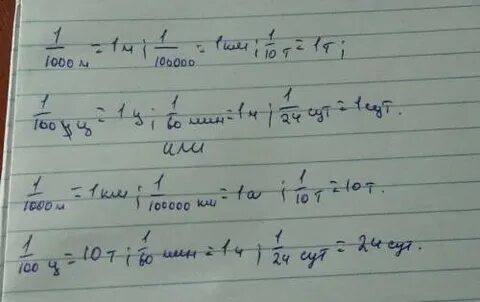 1/1000 м = 1м; 1/100000 = 1км; 1/10 т = 1т;
1/100 ц = 1ц; 1/60 мин = 1ч; 1/24 сут = 1сут.
или
1/1000 м = 1км; 1/100000 км = 1а; 1/10 т = 10т.
1/100 ц = 10т; 1/60 мин = 1ч; 1/24 сут = 24 сут.